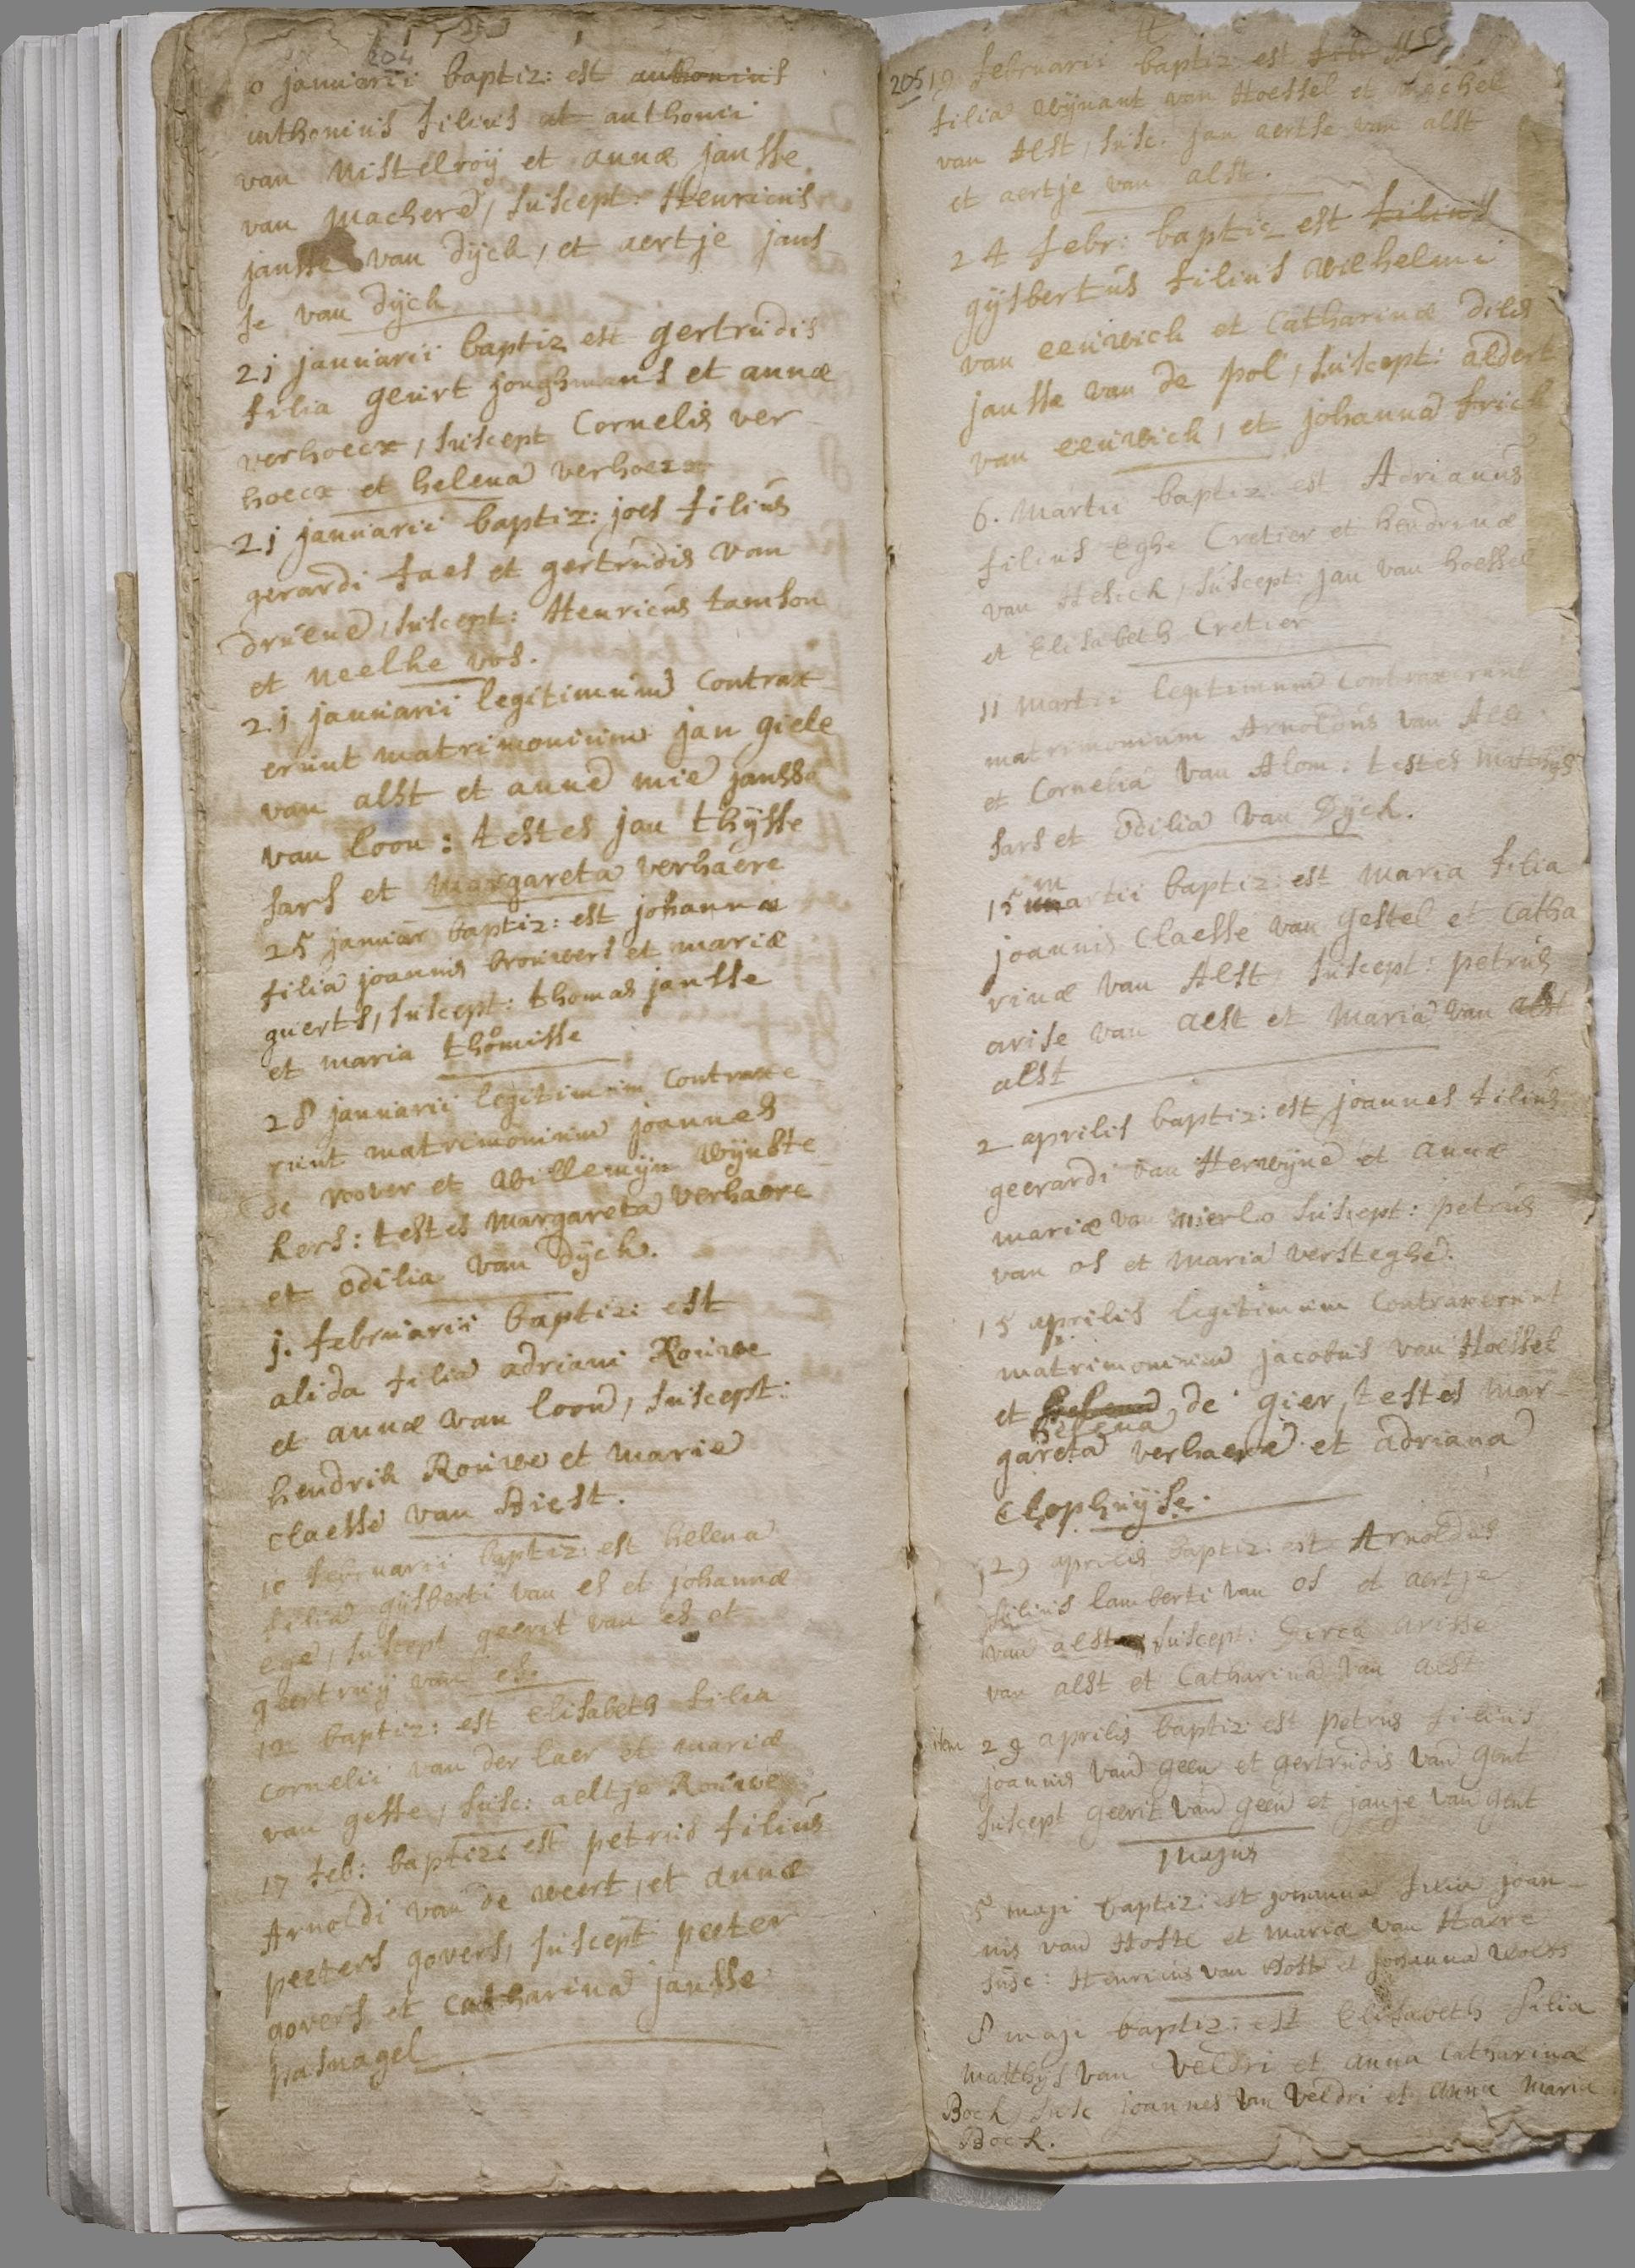 204
januarii baptiz: est authonius
authonius filius at authonii
van Nistelroij et annæ jansse
van Macheren, suscept: Henricus
jansse van Dijck, et aertje jans
se van Dijck
21 januarii baptiz est gertrudis
filia geurt jonghmans et annæ
verhoecx, suscept Cornelis ver
hoecx et helena verhoecx
21 januarii baptiz: joes filius
gerardi faes et gertrudis van
druenen, suscept: Henricus tamson
et Neelke vos.
21 januarii legitimum contrax
erunt matrimonium jan giele
van alst et anne mie jansse
van loon: testes jan thijsse
sars et Margareta verhaere
25 januar baptiz: est johanna
filia joannis brouwers et mariæ
guerts, suscept: thomas jansse
et maria thomisse
28 januarii legitimum contraxe
runt matrimonium joannes
de roover et Willemijn Wijnste
kers: testes Margareta verhaere
et odilia van Dijck.
1. februarii baptiz: est
alida filia adriani Rouwe
et annæ van loon, suscept:
hendrik Rouwe et Marie
claesse van Diest.
10 februarii baptiz: est helena
filia gijsberti van es et johannæ
ege, suscept geerit van es et
geertruij van es.
12 baptiz: est elisabeth filia
cornelii van der laer et mariæ
van gesse, susc: aeltje Rouwe
17 feb: baptiz: est petrus filius
Arnoldi van de weert, et annæ
peeters govers, suscept peeter
govers et Catharina jansse
pasnagel
205 19 februarii baptiz: est
filia Wijnant van Hoessel et Mechel
van Alst, susc. jan aertse van alst
et aertje van alst.
24 febr: baptiz est filius
gijsbertus filius Wilhelmi
van eeuwich et Catharinæ dilis
jansse van de pol, suscept: aldert
van eeuwich, et johanna frick
6. Martii baptiz: est Adrianus
filius Eghe Cretier et hendrinæ
van Hesick, suscept: jan van hoessel
et Elisabeth Cretier
11 Martii legitimum contraxerunt
matrimonium Arnoldus van Alst
et Cornelia van Alom: testes Matthijs
sars et Odilia van Dijck.
m
15 martii baptiz: est Maria filia
joannis Claesse van Gestel et Catha
rinæ van Alst, suscept: petrus
arise van aest et Maria van alst
alst
2 aprilis baptiz: est joannes filius
geerardi van Herwijne et Annæ
mariæ van Mierlo suscept: petrus
van os et Maria versteghe.
15 aprilis legitimum contraxerunt
matrimonium jacobus van Hoessel
et helena de gier, testes Mar-
helena
gareta verhaere et adriana
Clophuijse.
29 aprilis baptiz: est Arnoldus
filius lamberti van os et aertje
van alst suscept: Derca arisse
van alst et Catharina van aest
item 29 aprilis baptiz: est petrus filius
joannis van geen et gertrudis van gent
suscept geerit van geen et janje van gent
Majus
5 maji baptiz: est johanna filia joan-
nis van Hoste et Mariæ van Haere
susc: Henricus van Hoste et johanna
8 maji baptiz: est Elisabeth filia
Matthijs van Veldri et anna Catharina
Bock, susc joannes van Veldri et Anna Maria
Bock.